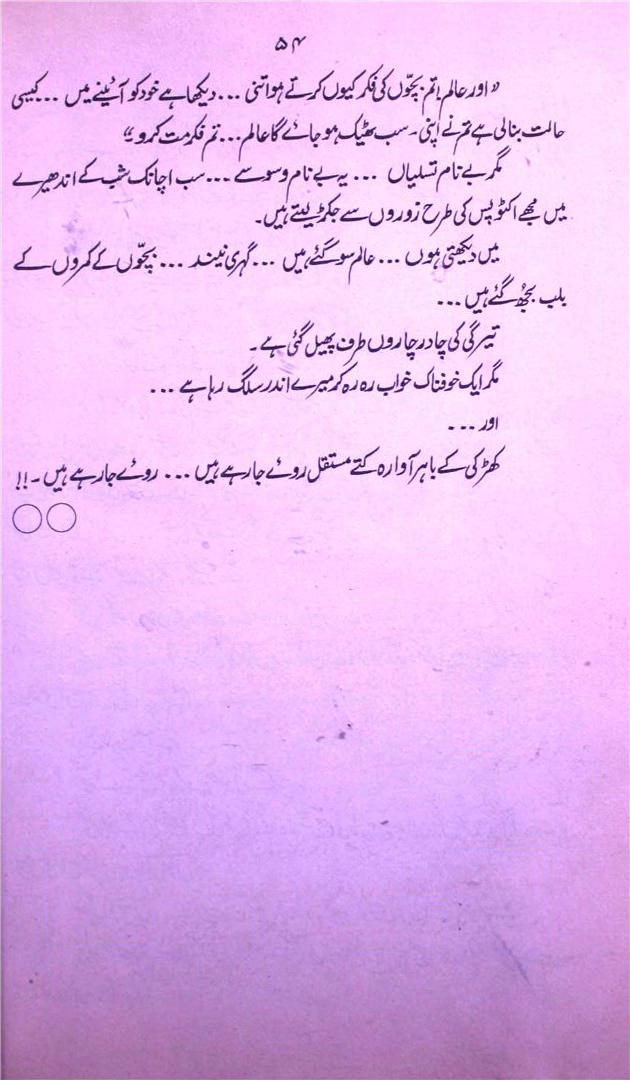 ۵۴
”اور عالم! تم بچّوں کی فکر کیوں کرتے ہو اتنی ... دیکھا ہے خود کو آئینے میں ... کیسی
حالت بنالی ہے تم نے اپنی۔ سب ٹھیک ہو جائے گا عالم ... تم فکر مت کرو“
مگر بے نام تسلیاں ... یہ بے نام وسوسے ... سب اچانک شب کے اندھیرے
میں مجھے اکٹوپس کی طرح زوروں سے جکڑ لیتے ہیں۔
میں دیکھتی ہوں ... عالم سو گئے ہیں ... گہری نیند ... بچّوں کے کمروں کے
بلب بجھ گئے ہیں ...
تیرگی کی چادر چاروں طرف پھیل گئی ہے۔
مگر ایک خوفناک خواب رہ رہ کر میرے اندر سلگ رہا ہے ...
اور ...
کھڑکی کے باہر آوارہ کتے مستقل روئے جا رہے ہیں ... روئے جا رہے ہیں۔!!